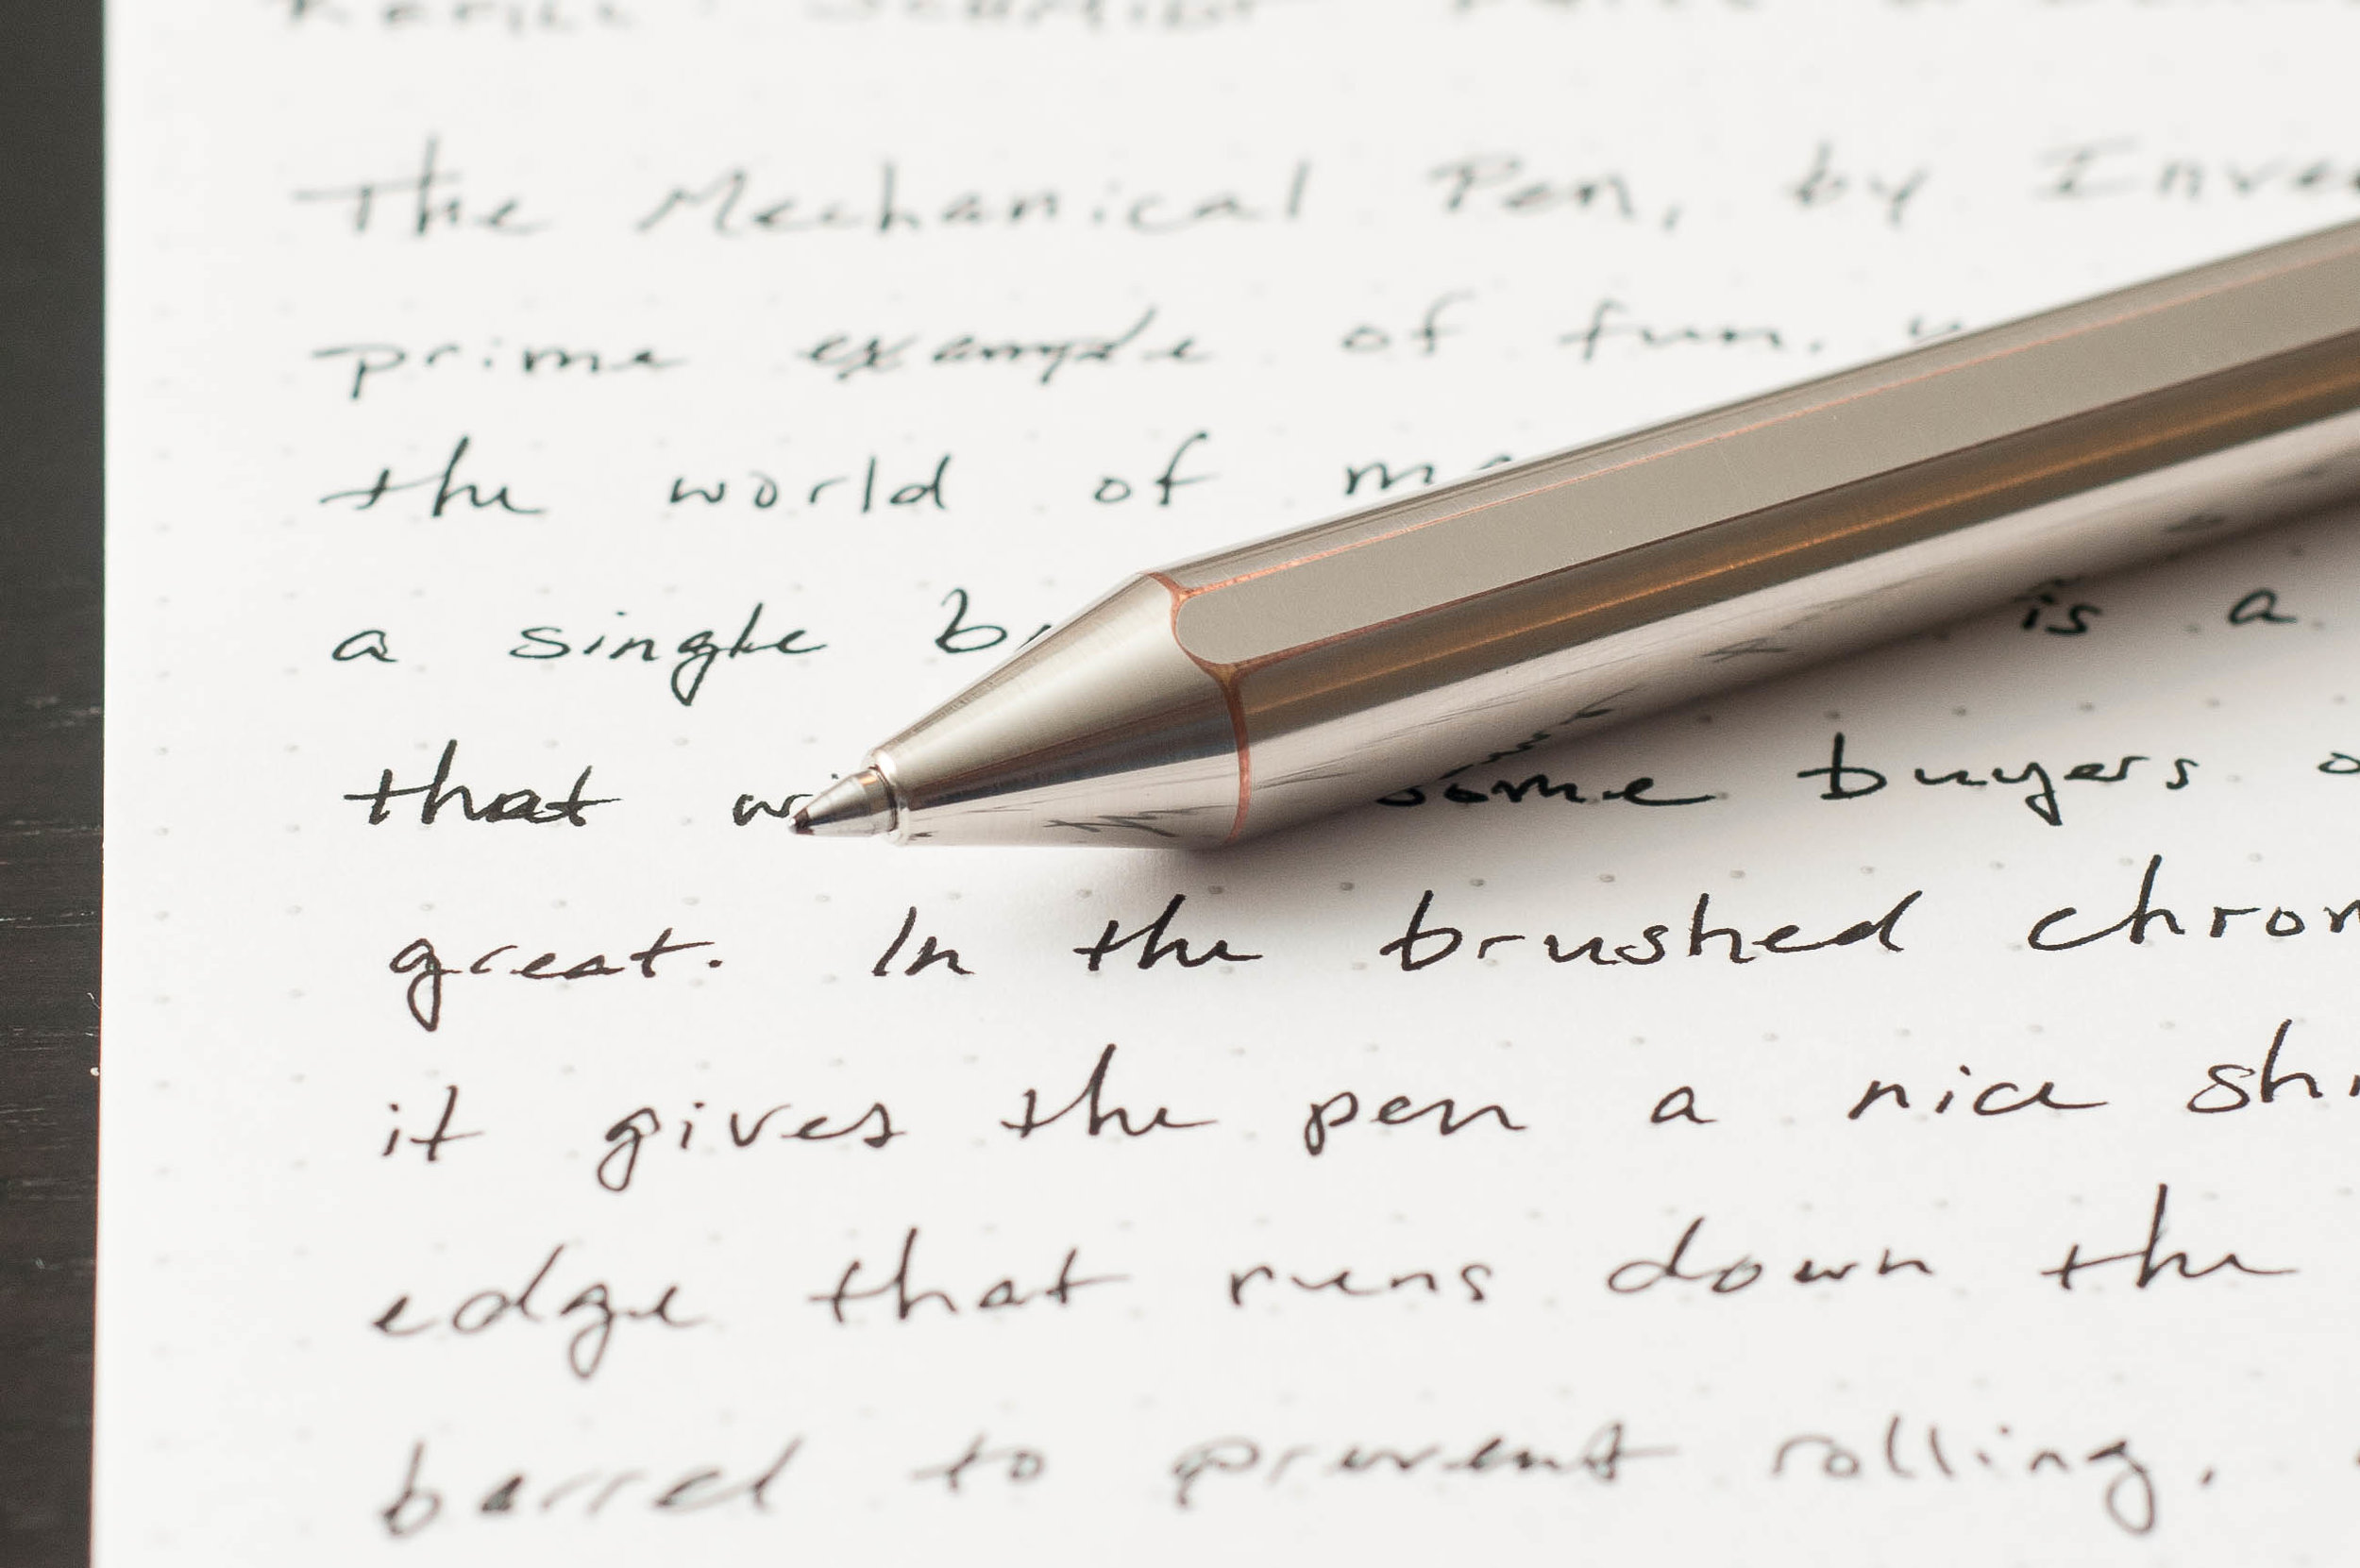 The Mechanical Pen, by Inve
prime example of fun.
the world of
a single
that some buyers
is a
great. In the brushed chrom
it gives the pen a nice
edge that runs down the
barrel to prevent rolling.